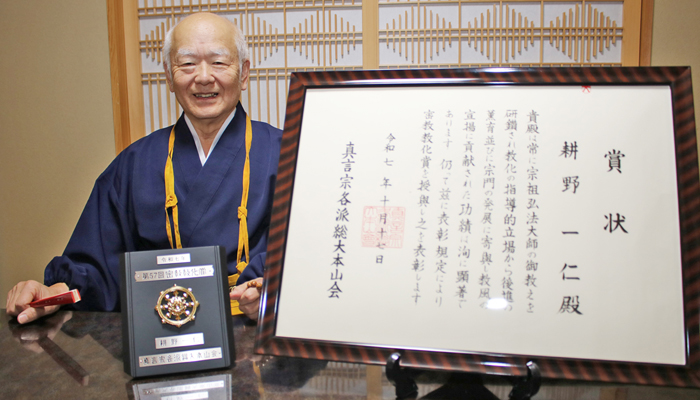 賞状
耕野一仁殿
貴殿は常に宗祖弘法大師の御教えを
研鑽され教化の指導的立場から後進の
薫育並びに宗門の発展に寄與し教風
宣揚に貢献された功績は洵に顕著で
あります 仍って茲に表彰規定により
密教教化賞を授與し之を表彰します
令和七年十月十七日
真言宗各派総大本山会
第57回 密教教化賞
耕野一仁
真言宗各派総大本山会